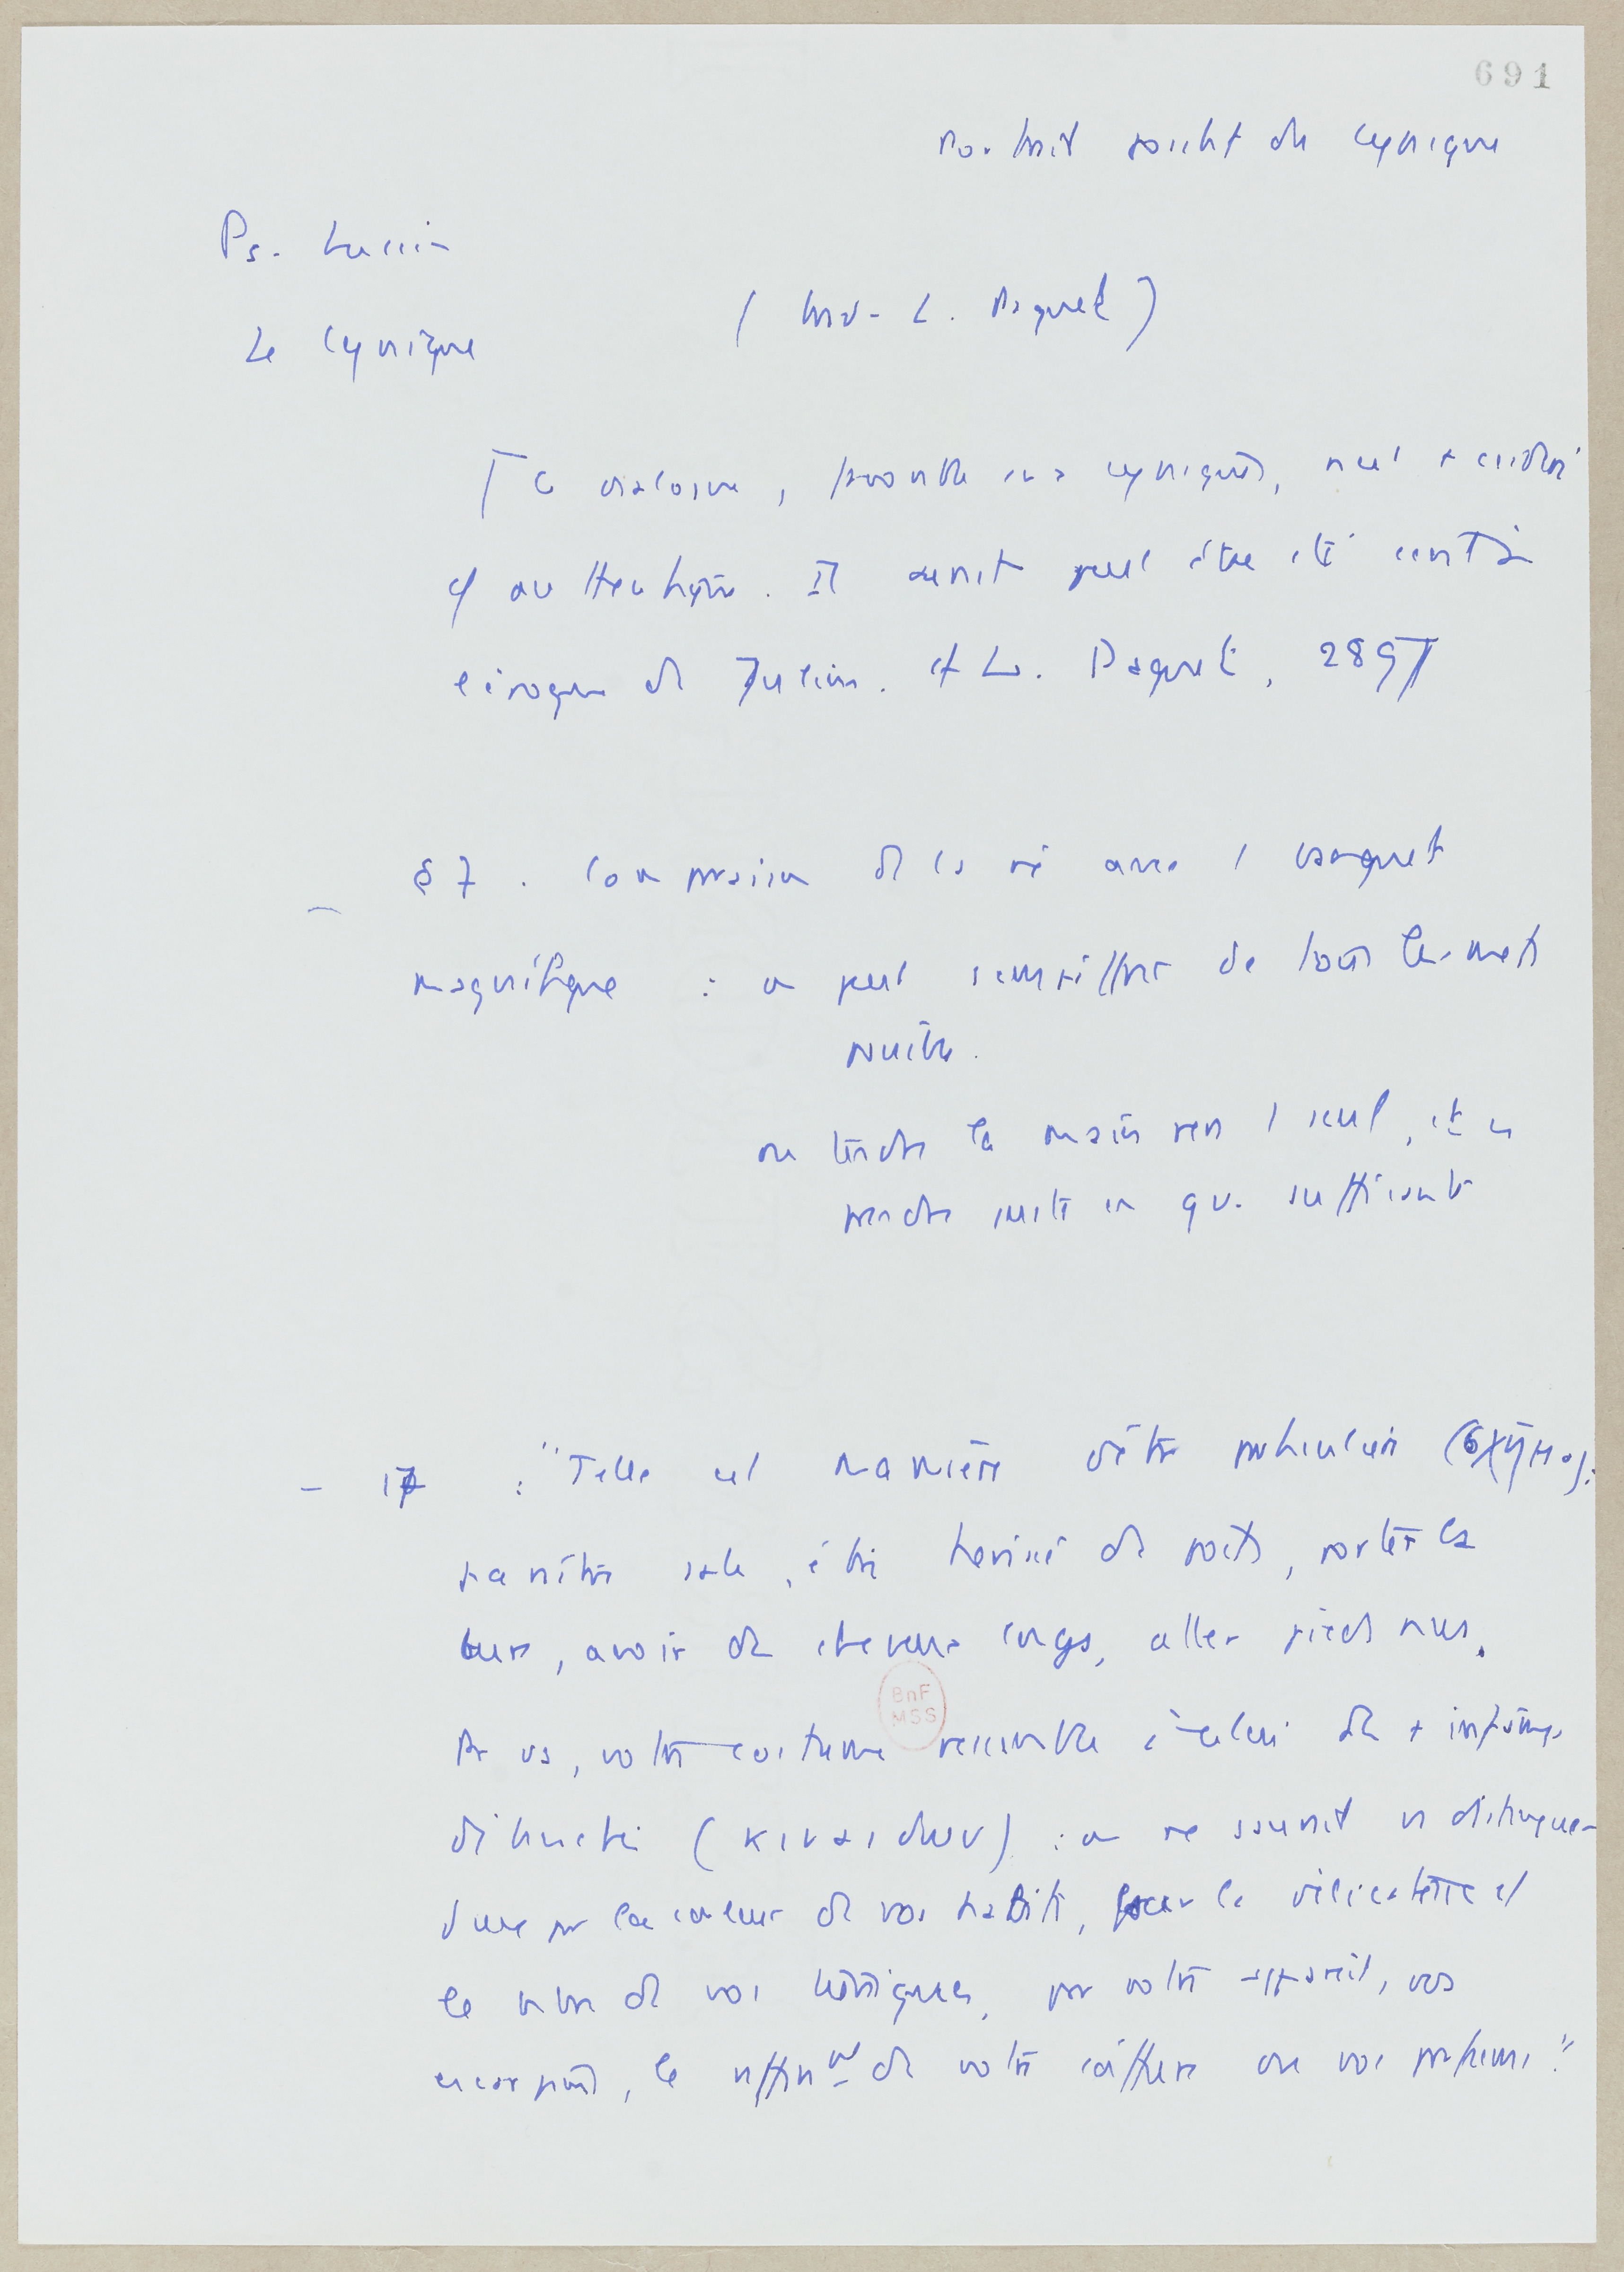 691
Portrait positif du cynique
Ps. Lucien
Le Cynique
(trad. L. Paquet)
[Ce dialogue, favorable aux cyniques, n'est + considéré
cf authentique. Il aurait peut être été écrit à
l'époque de Julien. cf L. Paquet, 289]
- § 7 . Comparaison de la vie avec 1 banquet
magnifique : on peut s'empiffrer de tous les mets
nuire.
ou tendre la main vers 1 seul, et en
prendre juste en qu. suffisante
- 17 : "Telle est manière d'être particulière (σχῆμα) :
paraître sale, être hérissé de poils, porter la
bure, avoir des cheveux longs, aller pieds nus.
Pr vs, votre costume ressemble à celui des + infâmes
débauchés (κιναιδων) : on ne saurait vs distinguer
d'eux par la couleur de vos habits, par la délicatesse et
le nbre de vos tuniques, par votre appareil, vos
escarpins, le raffinnt de votre coiffure ou vos parfums".
BnF
MSS